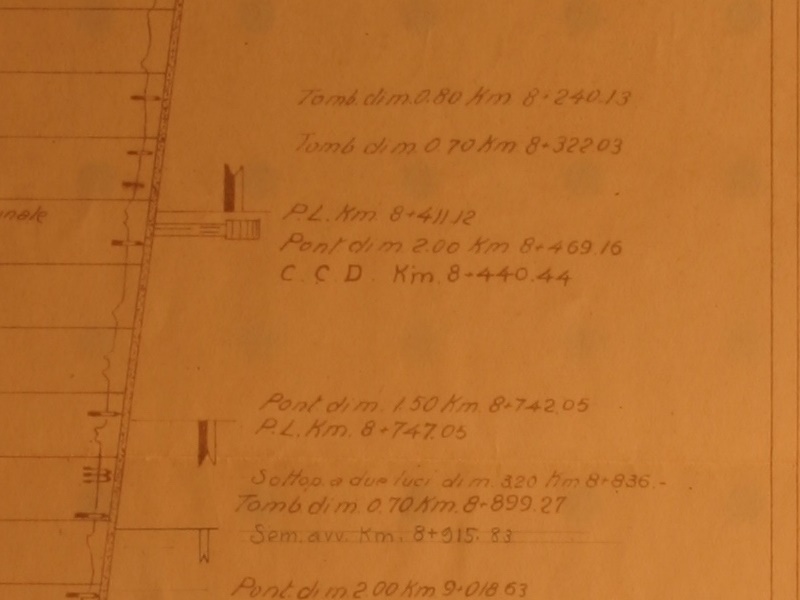 Tomb. di m. 0.80 Km 8+240.13
Tomb di m 0.70 Km 8+322.03
unale
P.L. Km. 8+411.12
Pont di m. 2.00 Km 8+469.16
C. C. D. Km. 8+440.44
Pont. di m. 1.50 Km. 8+742.05
P.L. Km. 8+747.05
Sottop. a due luci di m. 3.20 Km 8+836.-
Tomb di m. 0.70 Km. 8+899.27
Sem. avv. Km. 8+915.83
Pont di m 2.00 Km 9+018.63